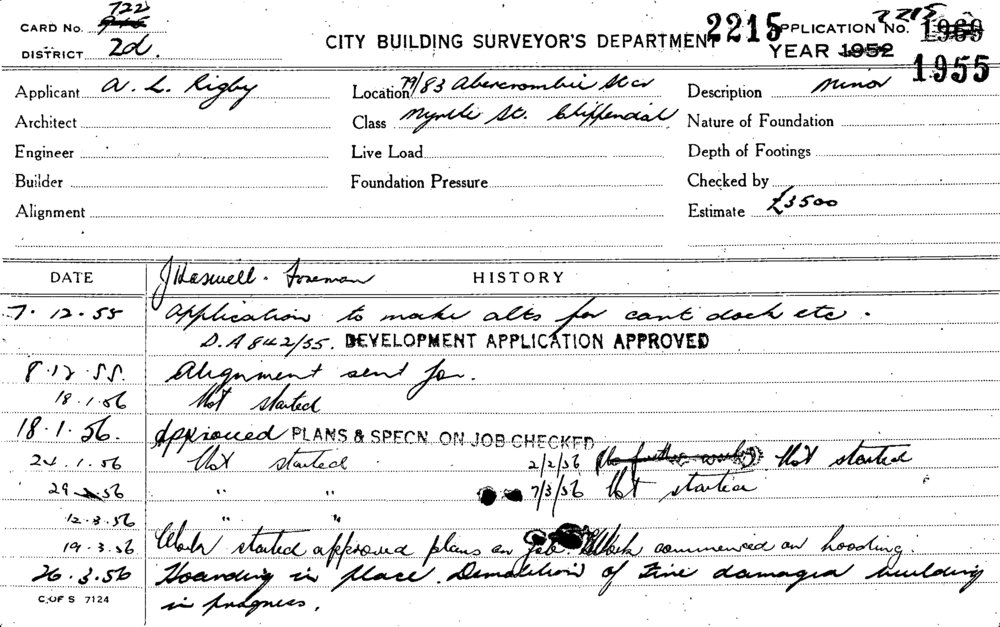 CARD No. 722
DISTRICT 2d.
CITY BUILDING SURVEYOR'S DEPARTMENT
2215 APPLICATION No. 2215
YEAR 1952 1955
Applicant A. L. Rigby Location 79/83 Abercrombie St cr Description Minor
Architect Class Myrtle St. Chippendale Nature of Foundation
Engineer Live Load Depth of Footings
Builder Foundation Pressure Checked by
Alignment Estimate £3500
DATE J Haswell - Foreman HISTORY
7.12.55 Application to make alts for cant dock etc.
D.A 842/55. DEVELOPMENT APPLICATION APPROVED
8.12.55. Alignment sent for.
18.1.56 Not started
18.1.56. Approved PLANS & SPECN. ON JOB CHECKED
24.1.56 Not started 2/2/56 Not started
29 56 " " 7/3/56 Not started
12.3.56 " "
19.3.56 Work started approved plans on job Work commenced on hoarding.
26.3.56 Hoarding in place. Demolition of Fire damaged building
C. OF S 7124 in progress.